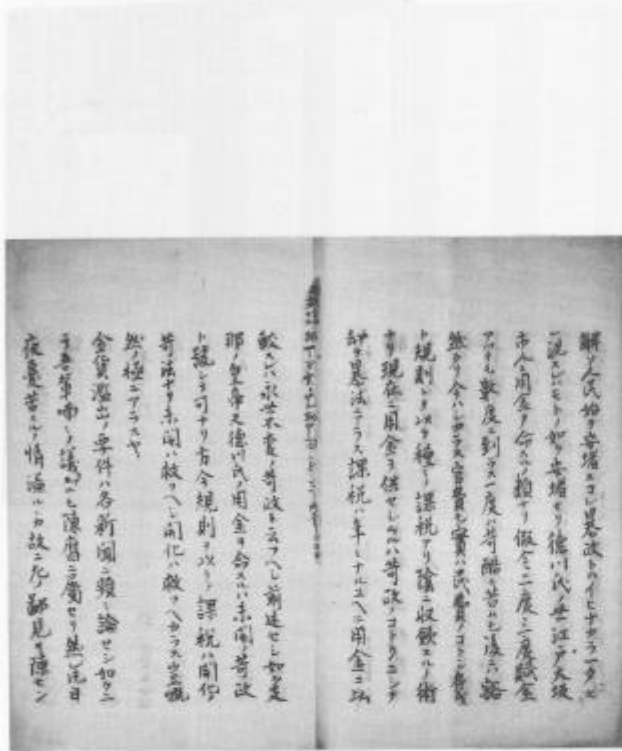 解ク人民始テ安堵スコレ暴政トハイヒナカラ一タヒ
一洗スレハモトノ如ク安堵セリ徳川氏ノ世江戸大坂
市人ニ用金ヲ命スルノ類ナリ仮令二度三度賦金
アルモ數度ニ到ラス一度ハ苛酷ニ苦ハモ後ハ豁
然タリ今ハシカラス官費モ實ハ民費
ト規則ヲ以テ種々課税アリ陰ニ収歛スルノ術
ナリ現在ニ用金ヲ供セシムルハ苛政ノコトクニシテ
却テ暴法ニアラス課税ハ年々ナルユヘニ用金ニ比
較スレハ永世不変ノ苛政ト云フヘシ前述セシ如ク支
那ノ皇帝又徳川氏ノ用金ヲ命スルハ未開ノ苛政
ト称シテ可ナリ方今規則ヲ以テノ課税ハ開化
苛法ナリ未開ハ救フヘシ開化ハ救フヘカラス豈概
然ノ極ニアラスヤ
金貨濫出ノ要件ハ各新聞ニ頻々論セシ如クニ
テ吾輩喃々ノ議スルモ陳腐ニ属セリ然レ圧日
夜憂苦スルノ情溢ルヽカ故ニ先ツ鄙見ヲ陳セン